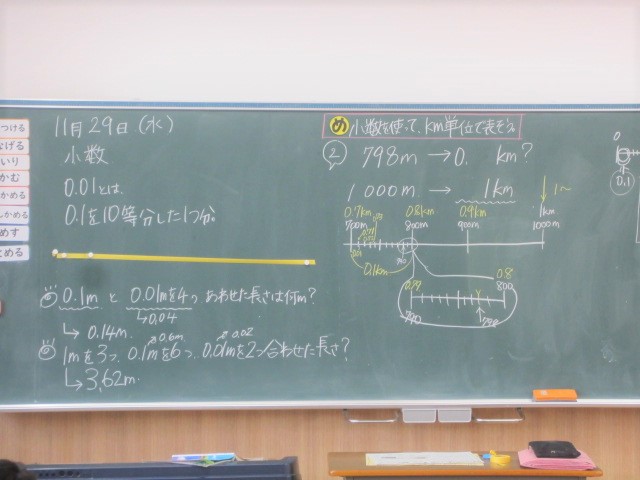 11月29日(水)
小数
0.01とは、
0.1を10等分した1つ分。
0.1mと0.01mを4つあわせた長さは何m?
→0.04
→0.14m.
0.6m 0.02
1mを3つ、0.1mを6つ、0.01mを2つ合わせた長さ?
→3.62m.
め 小数を使って、km単位で表そう。
② 798m→0. km?
1000m→1km
1~
0.7km 0.8km 0.9km 1km
700m 800m 900m 1000m
0.1km
0.79 0.8
790 800
798
0
0.1
つける
なげる
いり
かむ
かめる
しかめる
めす
とめる